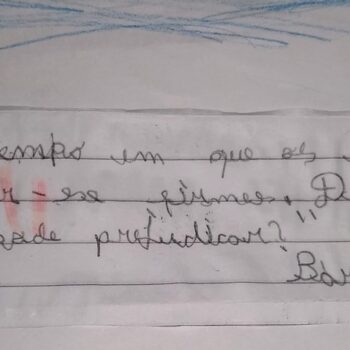 empo em que os
r-se firmes. "D
gade prejudicar?"
Bar